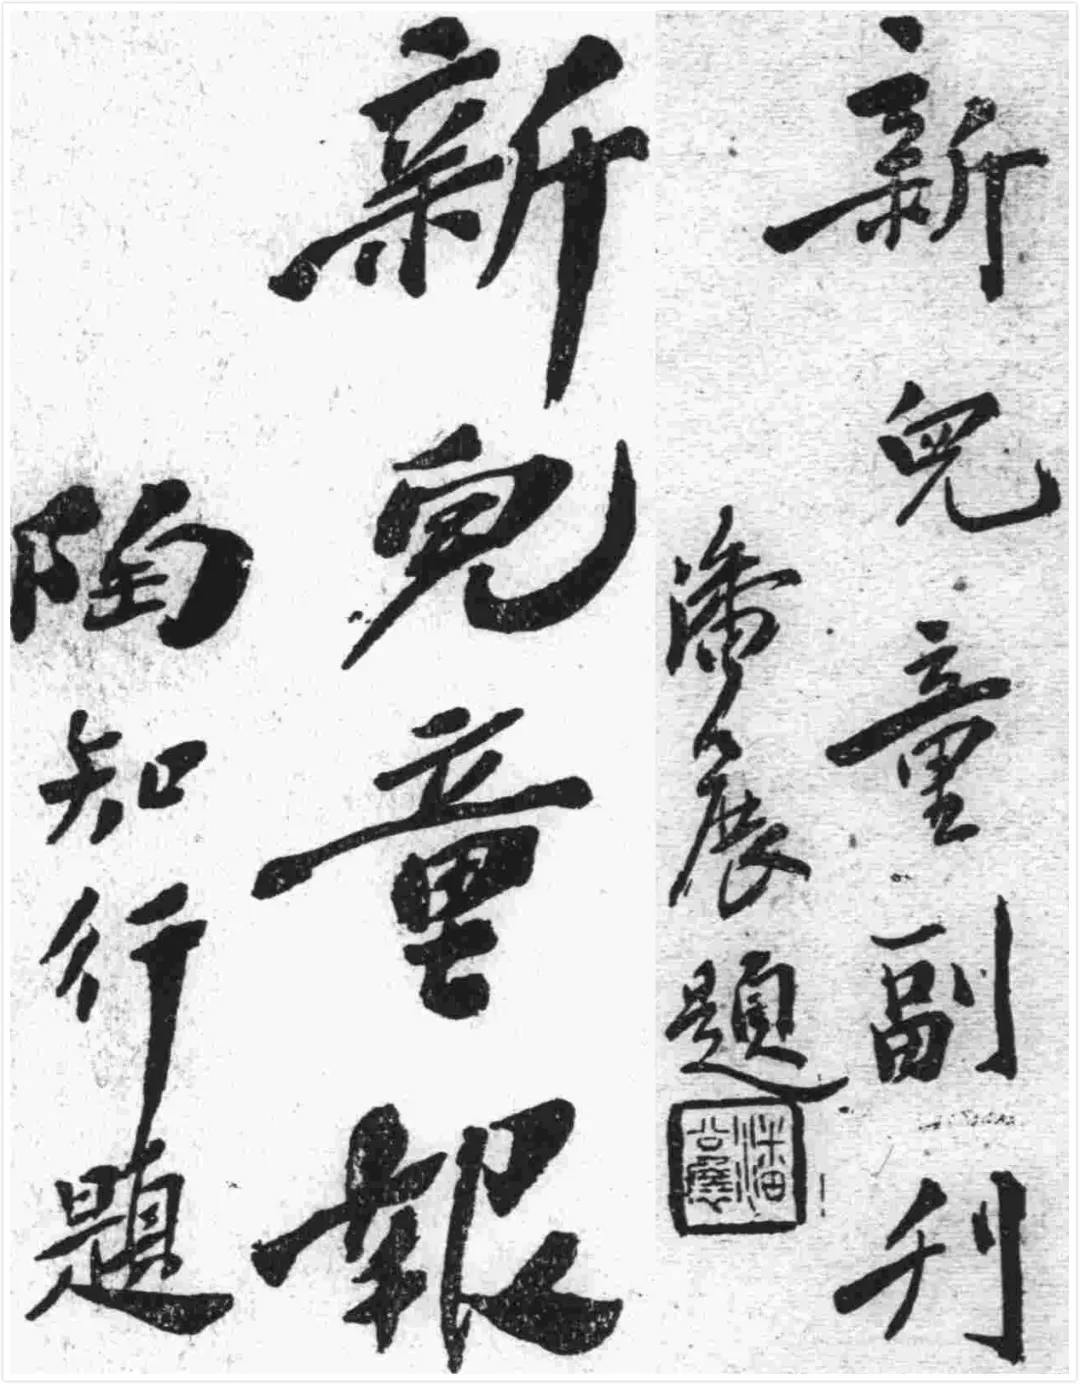 新兒童副刊
潘公展題
潘公展
新兒童報
陶知行題